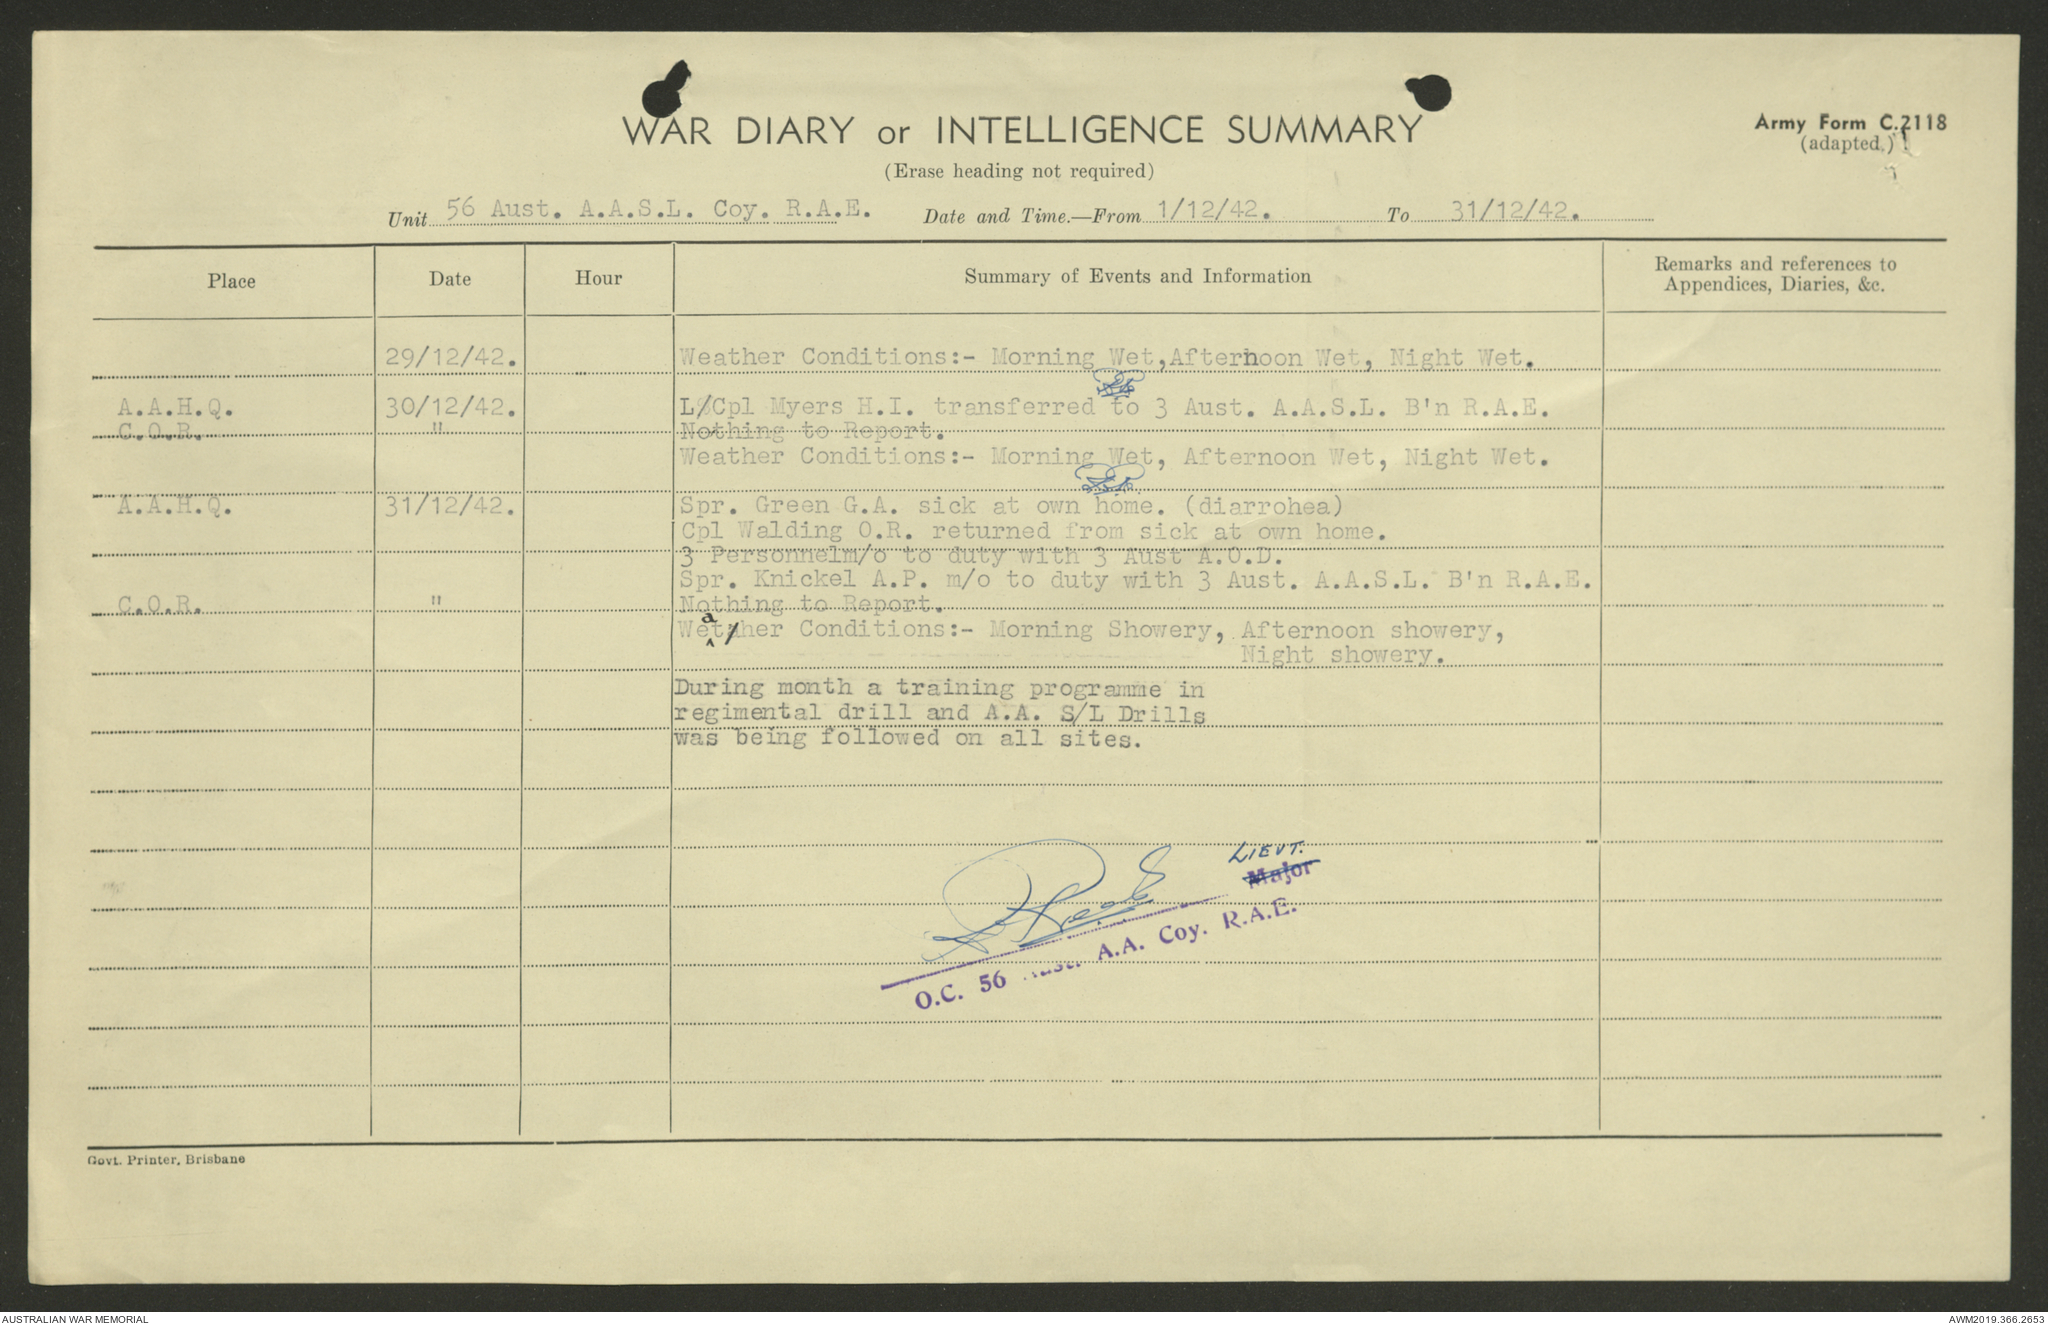 WAR DIARY or INTELLIGENCE SUMMARY
Army Form C.2118
(adapted.)
(Erase heading not required)
Unit 56 Aust. A.A.S.L. Coy. R.A.E. Date and Time.—From 1/12/42. To 31/12/42.
Place Date Hour Summary of Events and Information Remarks and references to
Appendices, Diaries, &c.
29/12/42. Weather Conditions:- Morning Wet,Afternoon Wet, Night Wet.
A.A.H.Q. 30/12/42. L/Cpl Myers H.I. transferred to 3 Aust. A.A.S.L. B'n R.A.E.
C.O.R. " Nothing to Report.
Weather Conditions:- Morning Wet, Afternoon Wet, Night Wet.
A.A.H.Q. 31/12/42. Spr. Green G.A. sick at own home. (diarrohea)
Cpl Walding O.R. returned from sick at own home.
3 Personnelm/o to duty with 3 Aust A.O.D.
Spr. Knickel A.P. m/o to duty with 3 Aust. A.A.S.L. B'n R.A.E.
C.O.R. " Nothing to Report.
Weather Conditions:- Morning Showery, Afternoon showery,
Night showery.
During month a training programme in
regimental drill and A.A. S/L Drills
was being followed on all sites.
LIEUT.
Major
O.C. 56 Aust. A.A. Coy. R.A.E.
Govt. Printer, Brisbane
AUSTRALIAN WAR MEMORIAL
AWM2019.366.2653